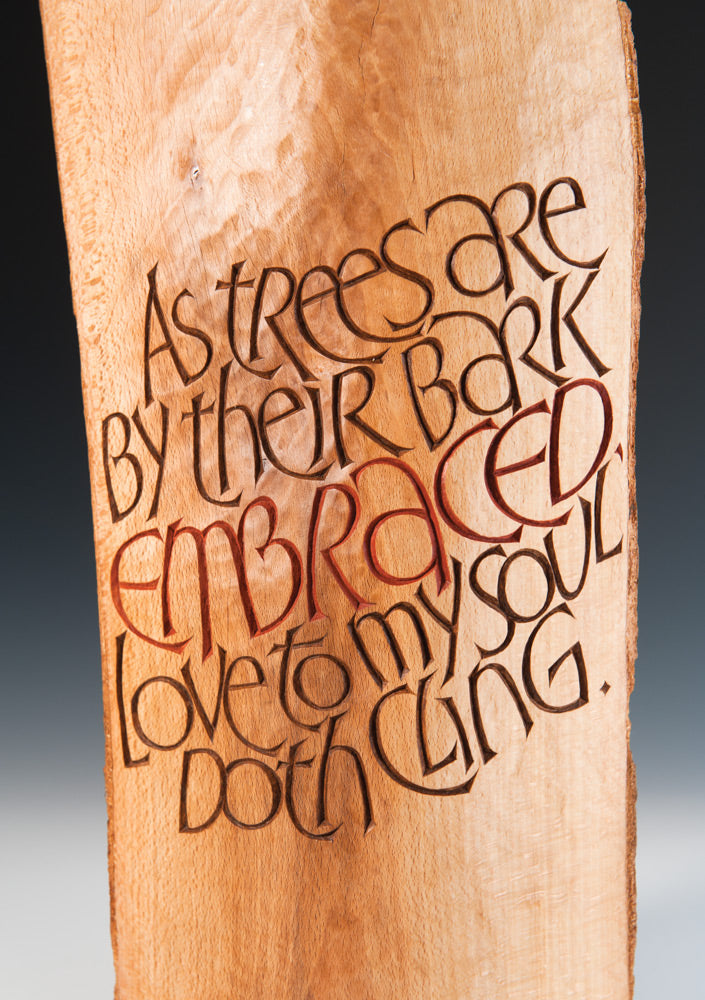 As trees are
by their bark
embraced,
love to my soul
doth cling.